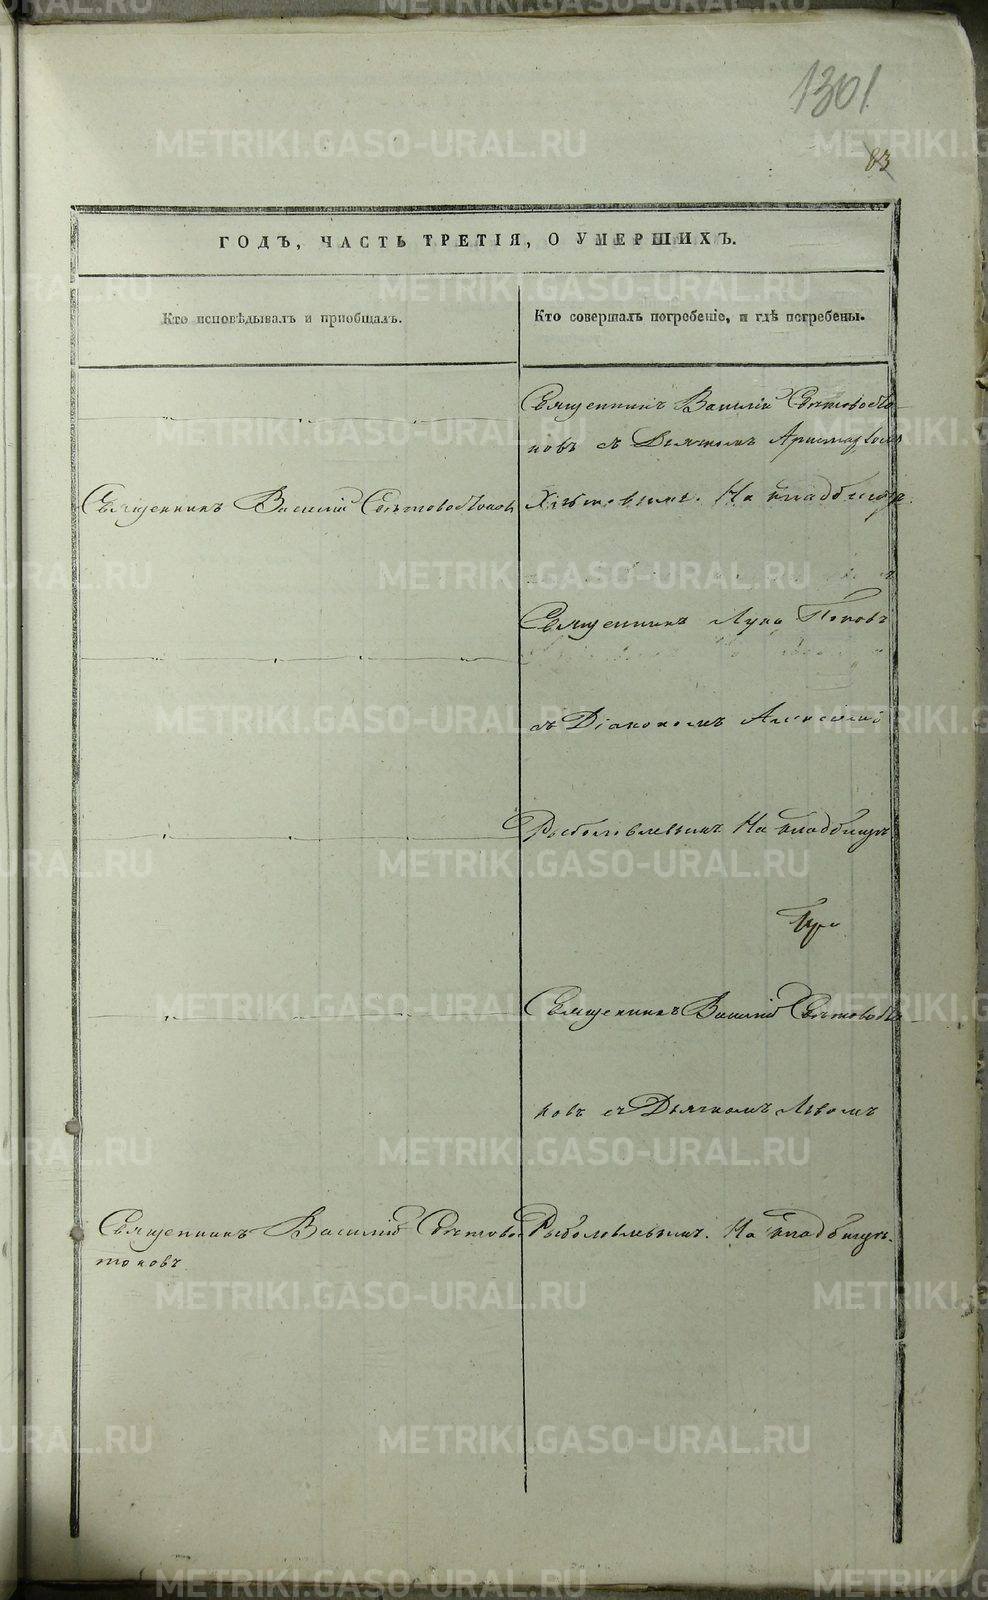 1301
83
ГОДЪ, ЧАСТЬ ТРЕТІЯ, О УМЕРШИХЪ.
Кто исповѣдывалъ и пріобщалъ.
Кто совершалъ погребеніе, и гдѣ погребены.
Священникъ Василій
новъ съ Дьячкомъ
Священникъ Василій
На кладбищѣ.
Священникъ Лука Поповъ
съ Діакономъ Алексѣемъ
Рыболовлевымъ. На кладбищѣ
Священникъ Василій
ковъ съ Дьячкомъ Львомъ
Священникъ Василій
Рыболовлевымъ. На кладбищѣ.
токовъ.
METRIKI.GASO-URAL.RU